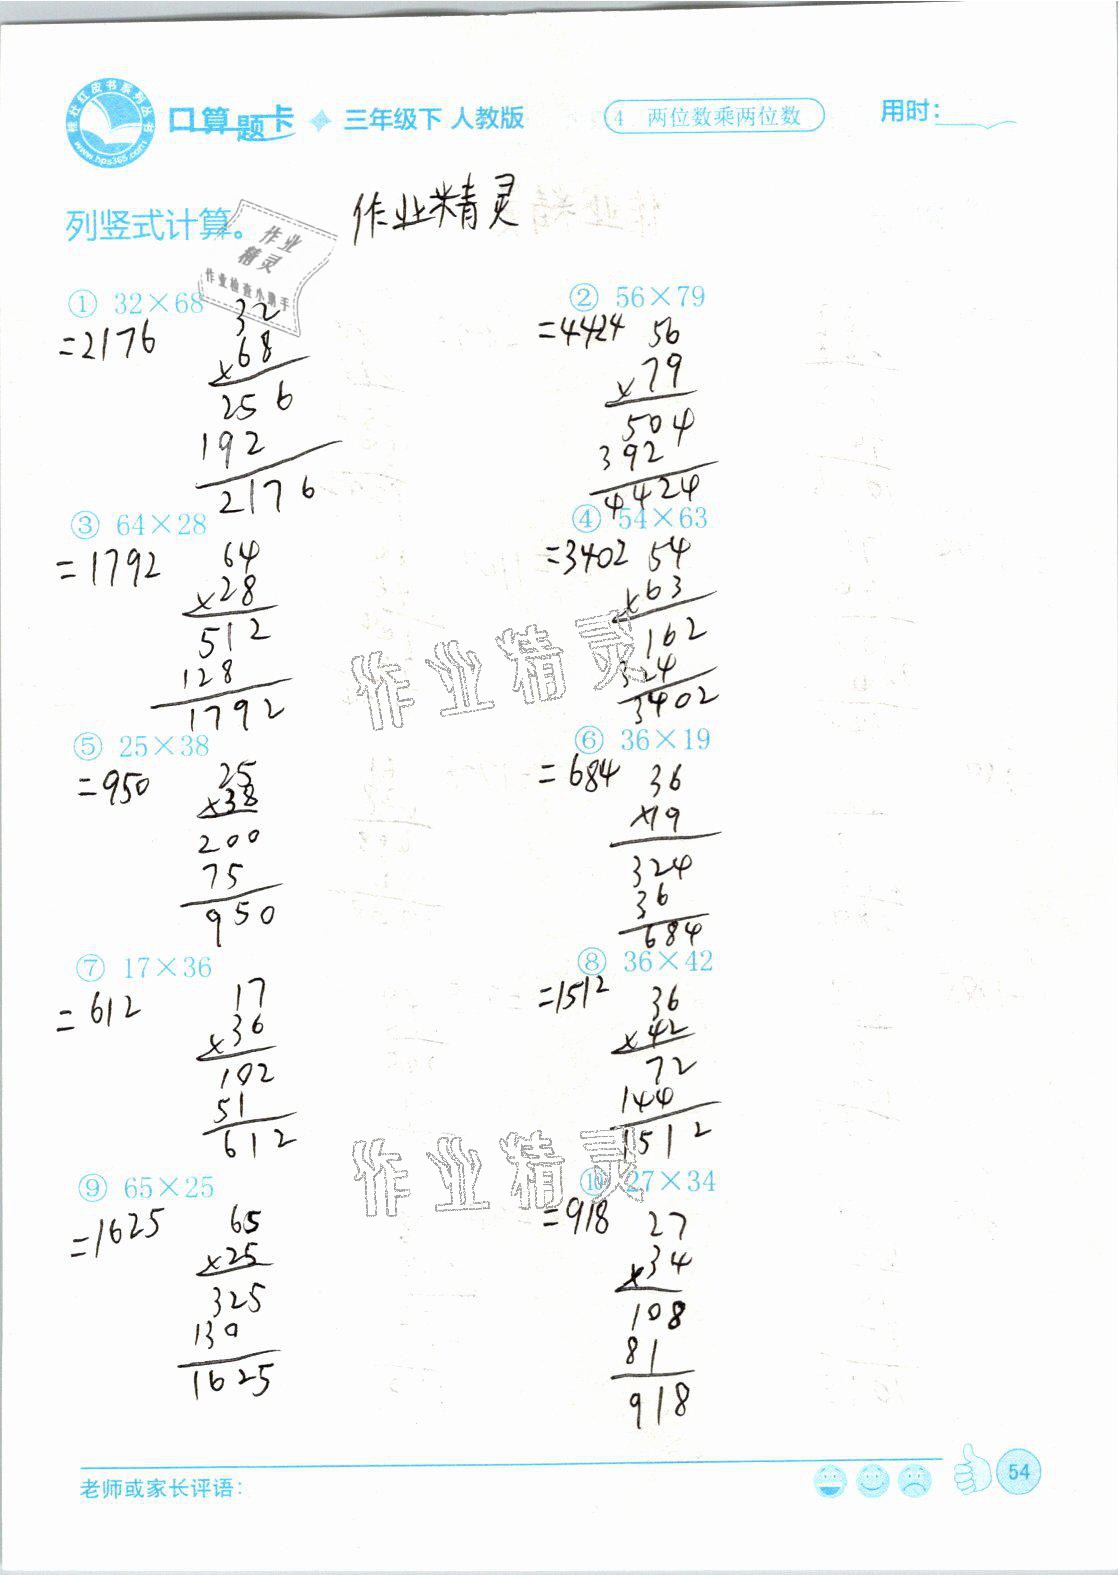 口算题卡 三年级下 人教版
4 两位数乘两位数
用时:
www.hps365.com
列竖式计算。
作业精灵
作业
精灵
① 32×68
=2176
32
×68
256
192
2176
② 56×79
=4424
56
×79
504
392
4424
③ 64×28
=1792
64
×28
512
128
1792
④ 54×63
=3402
54
×63
162
324
3402
作业精灵
⑤ 25×38
=950
25
×38
200
75
950
⑥ 36×19
=684
36
×19
324
36
684
⑦ 17×36
=612
17
×36
102
51
612
⑧ 36×42
=1512
36
×42
72
144
1512
作业精灵
⑨ 65×25
=1625
65
×25
325
130
1625
⑩ 27×34
=918
27
×34
108
81
918
老师或家长评语:
54